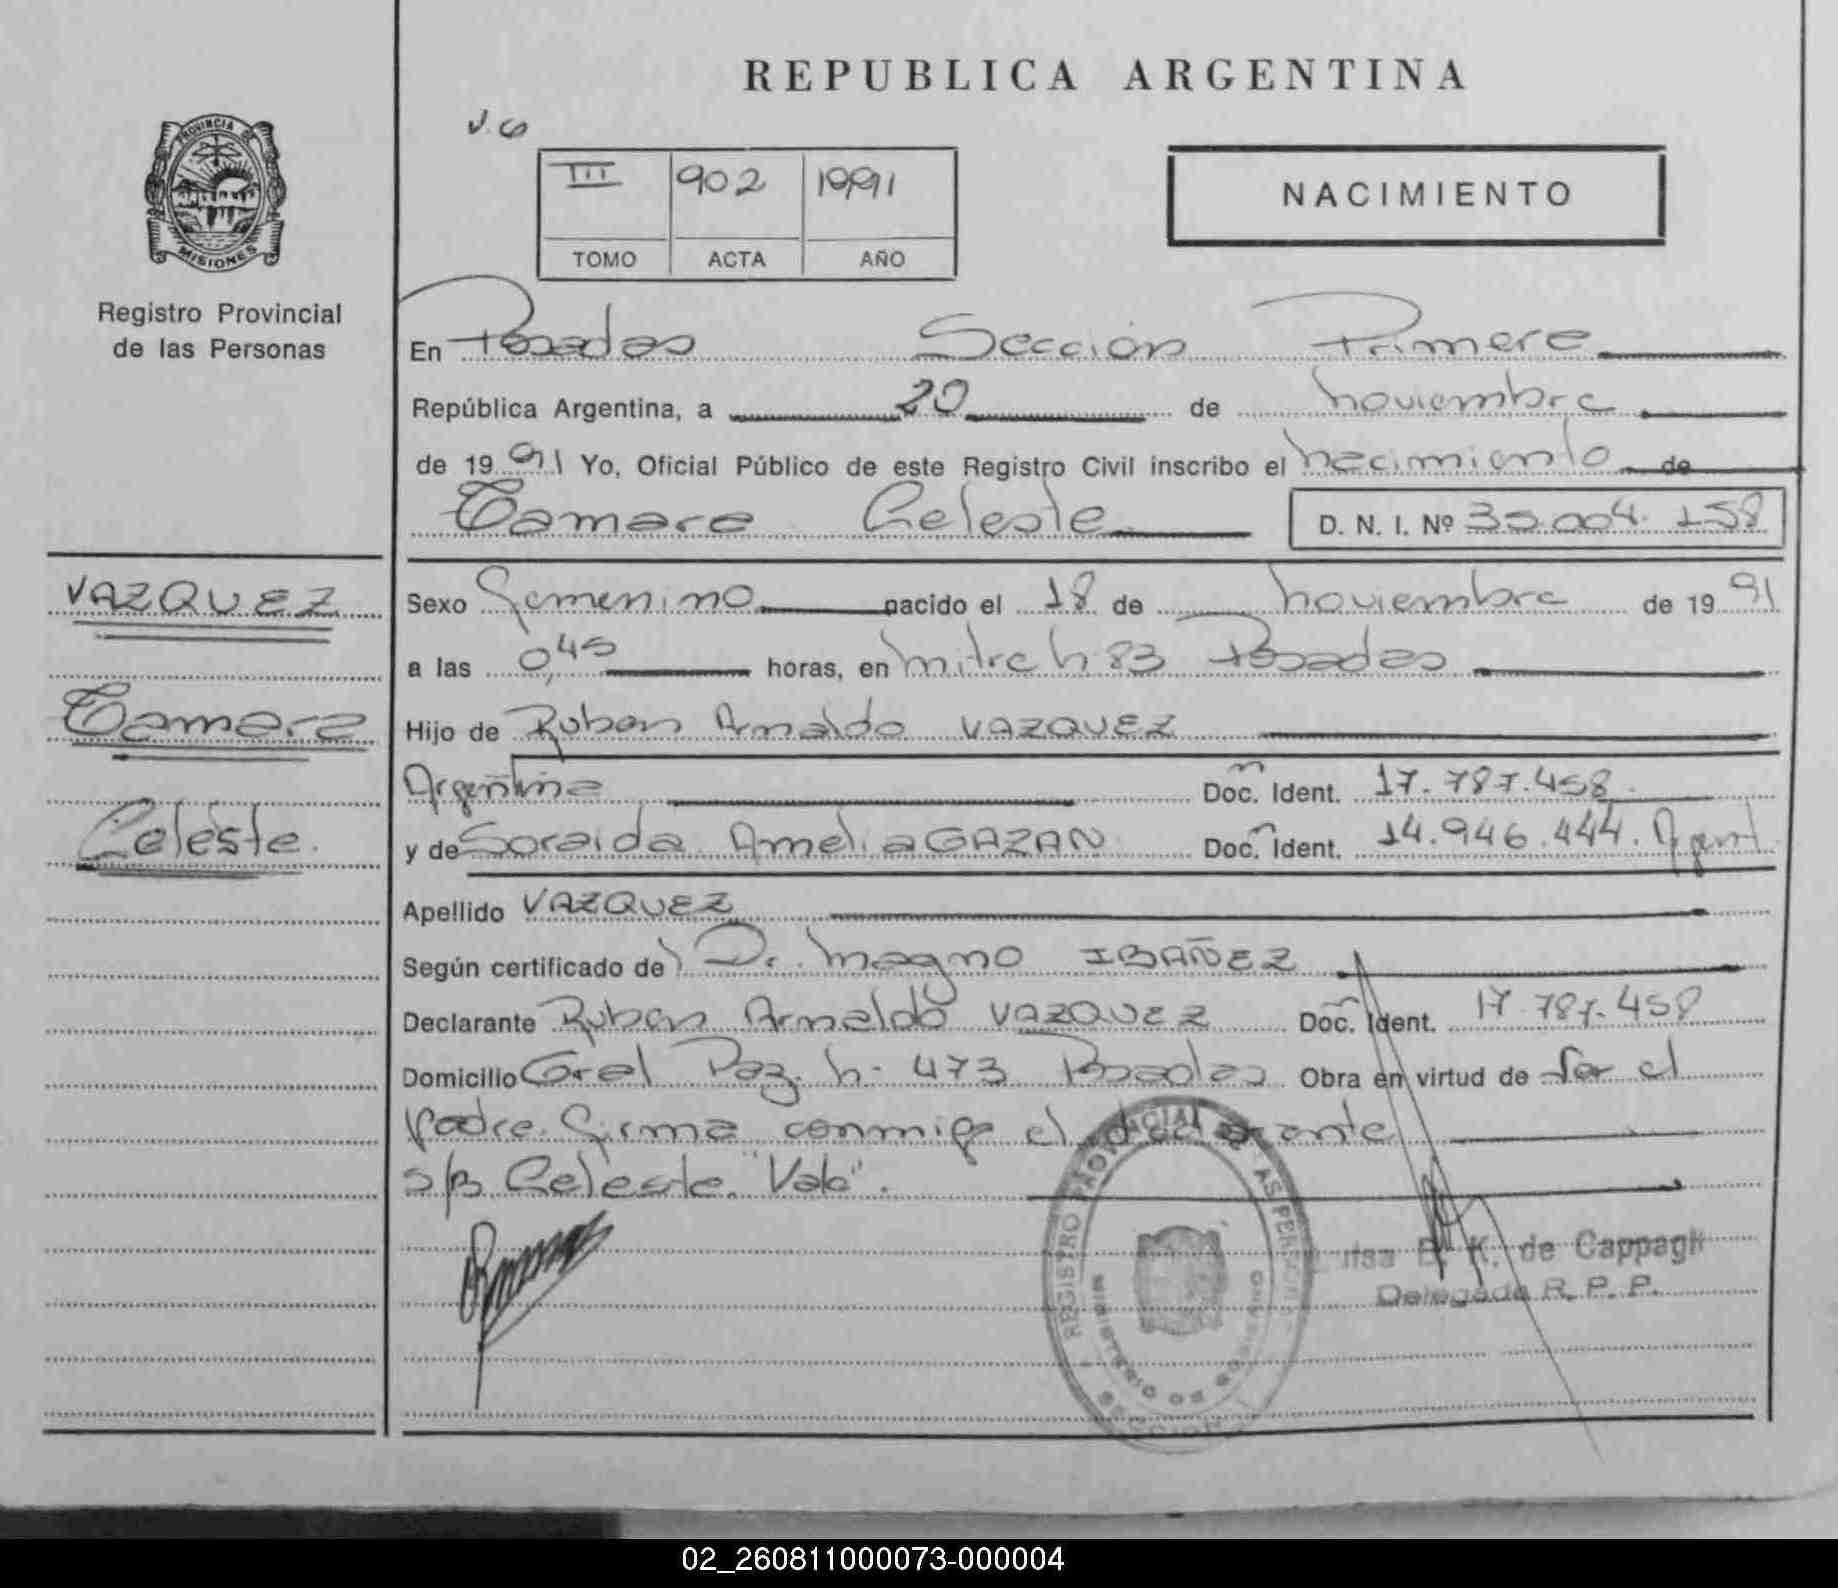 REPUBLICA ARGENTINA
PROVINCIA DE
MISIONES
Registro Provincial
de las Personas
III 902 1991
TOMO ACTA AÑO
NACIMIENTO
En Posadas Sección Primera
República Argentina, a 20 de noviembre
de 1991 Yo, Oficial Público de este Registro Civil inscribo el nacimiento de
Tamara Celeste D. N. I. Nº 35.004.158
VAZQUEZ
Tamara
Celeste.
Sexo femenino nacido el 18 de noviembre de 1991
a las 0,45 horas, en mitre h 83 Posadas
Hijo de Ruben Arnaldo VAZQUEZ
Argentina Doc. Ident. 17.787.458
y de Soraida Amelia GAZAN Doc. Ident. 14.946.444. Argent
Apellido VAZQUEZ
Según certificado del Dr. Magno IBAÑEZ
Declarante Ruben Arnaldo VAZQUEZ Doc. Ident. 17.787.458
Domicilio Gral Paz. h- 473 Posadas Obra en virtud de Ser el
padre. firma conmigo el declarante
s/b Celeste. "Vale".
REGISTRO PROVINCIAL DE
MINISTERIO DE GOBIERNO
SECCION
E. K. de Cappagli
Delegada R. P. P.
02_260811000073-000004